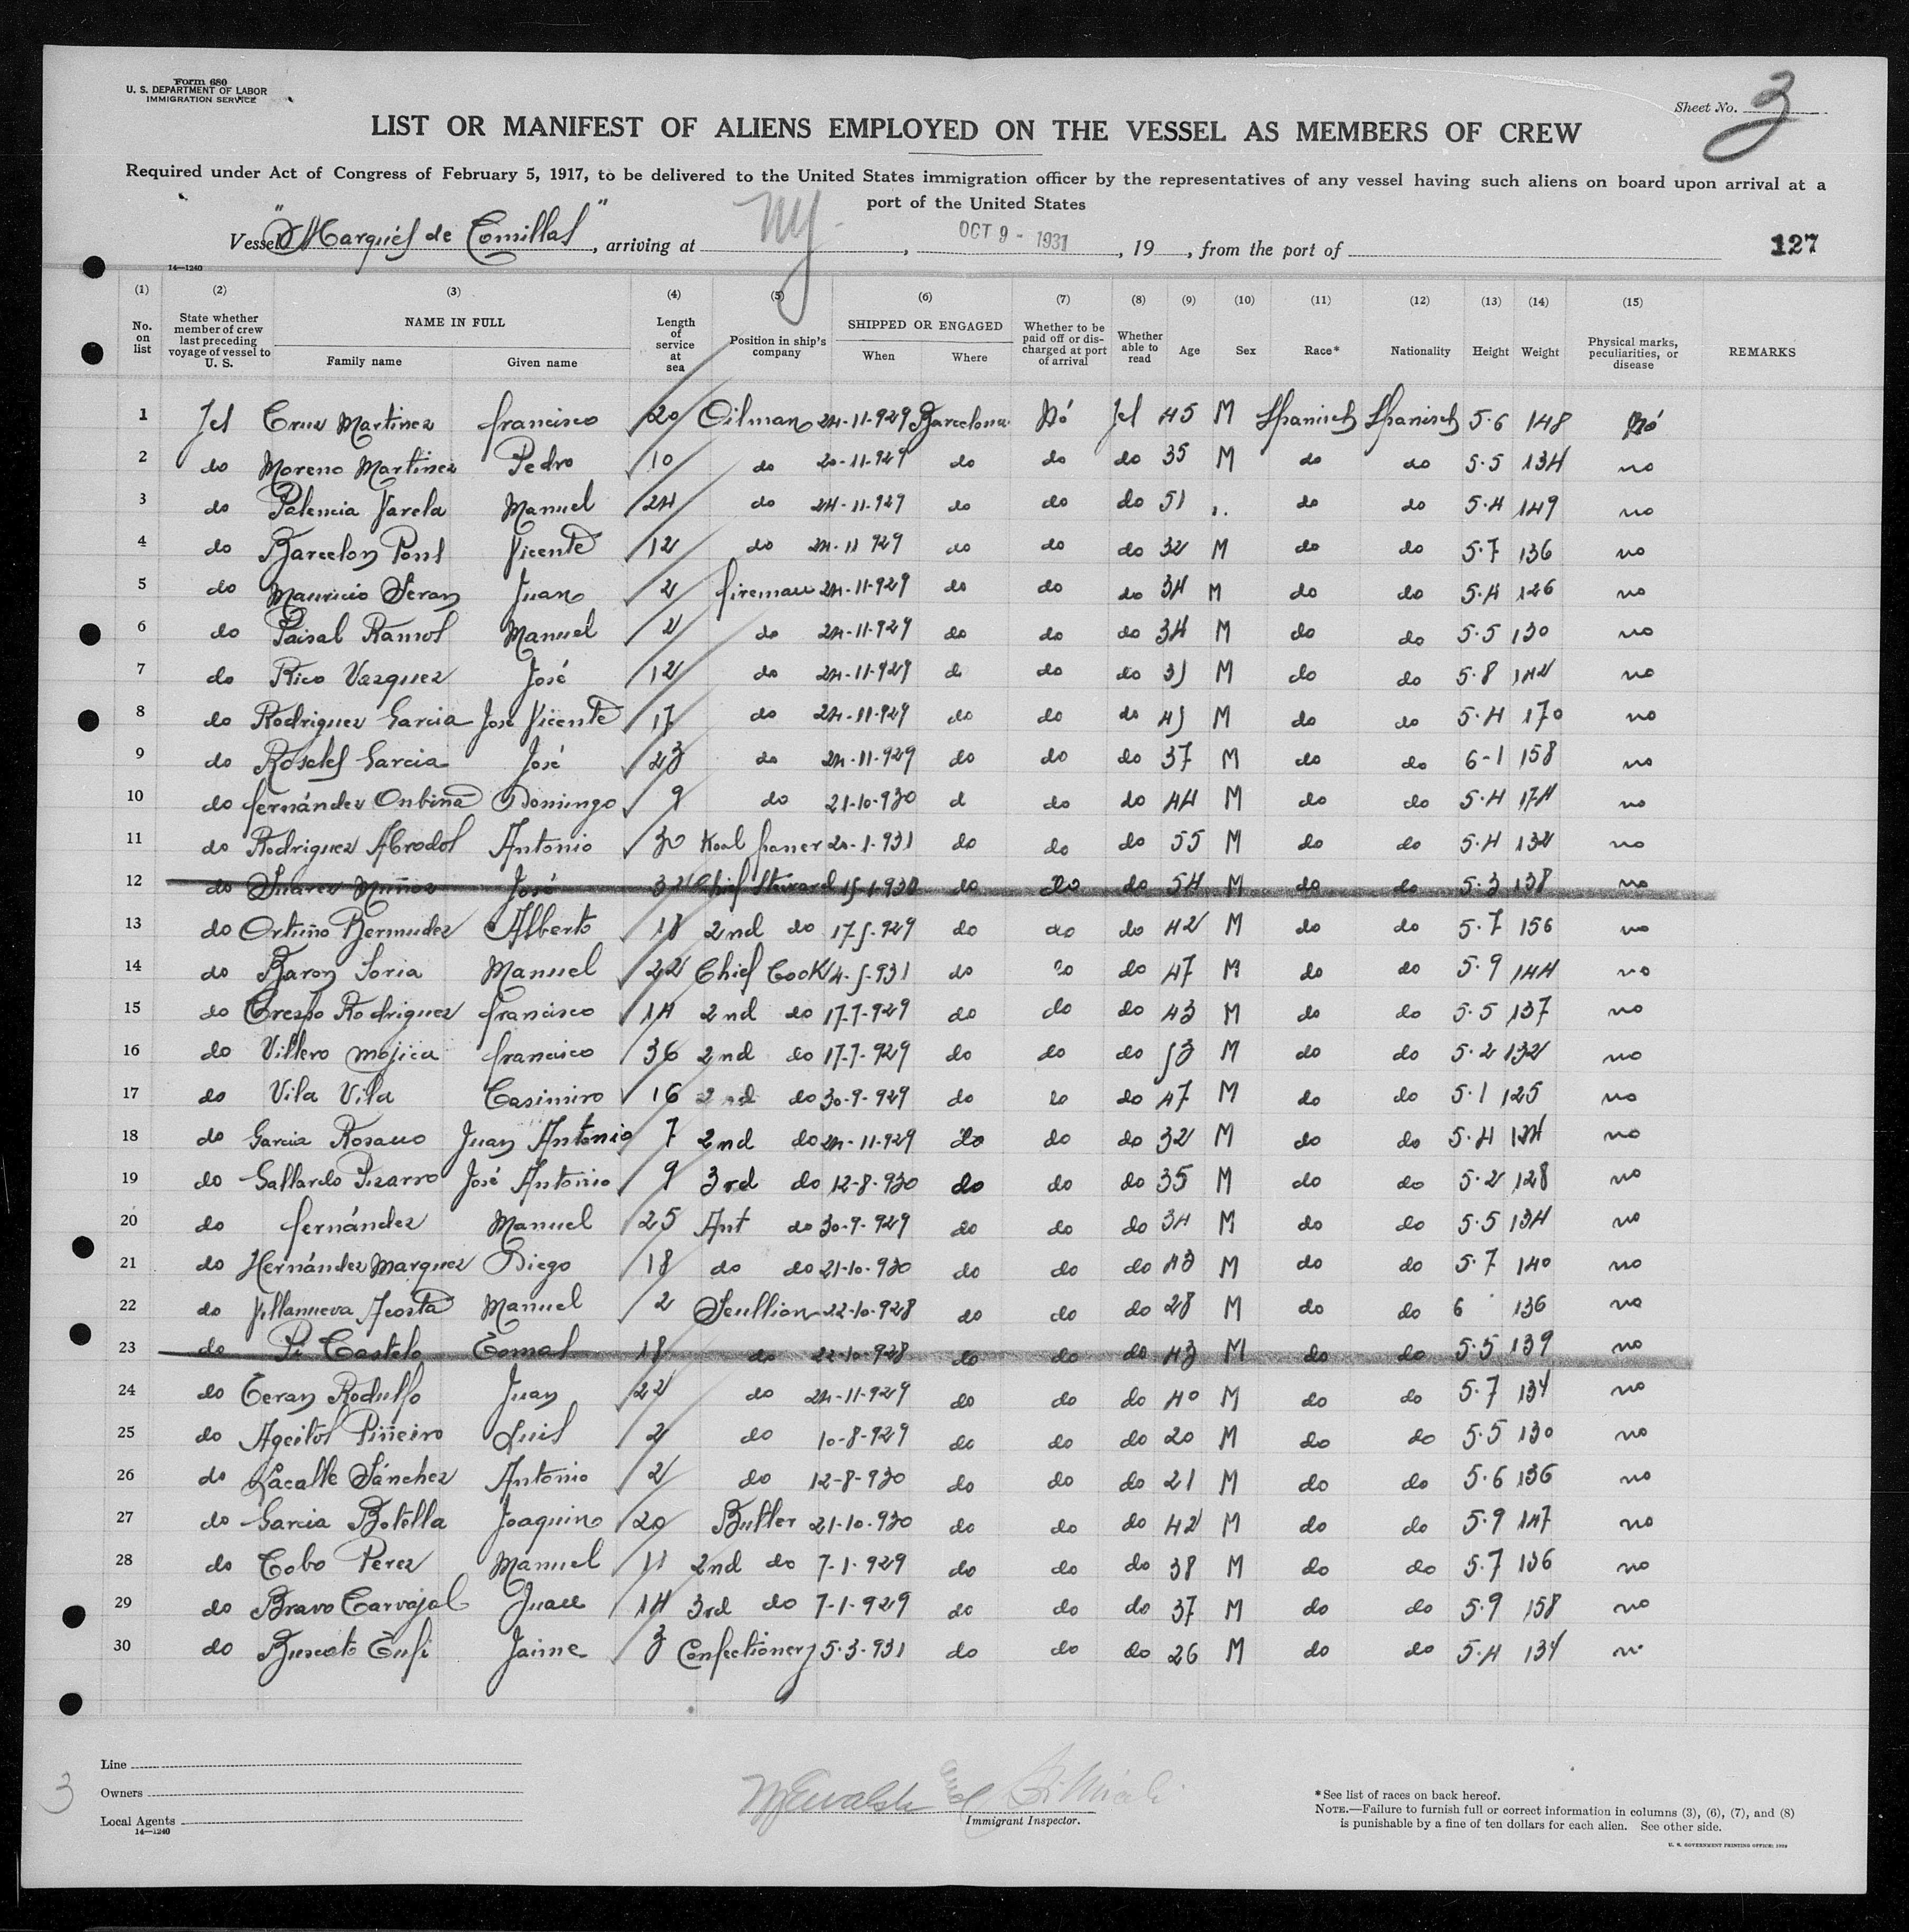 Form 680
U. S. DEPARTMENT OF LABOR
IMMIGRATION SERVICE
Sheet No. 3
LIST OR MANIFEST OF ALIENS EMPLOYED ON THE VESSEL AS MEMBERS OF CREW
Required under Act of Congress of February 5, 1917, to be delivered to the United States immigration officer by the representatives of any vessel having such aliens on board upon arrival at a
port of the United States
Vessel "Marqués de Comillas", arriving at NY, OCT 9 - 1931, 19, from the port of 127
14—1240
(1) (2) (3) (4) (5) (6) (7) (8) (9) (10) (11) (12) (13) (14) (15)
No. on list State whether member of crew last preceding voyage of vessel to U. S. NAME IN FULL Family name Given name Length of service at sea Position in ship's company SHIPPED OR ENGAGED When Where Whether to be paid off or discharged at port of arrival Whether able to read Age Sex Race* Nationality Height Weight Physical marks, peculiarities, or disease REMARKS
1 Jes Cruz Martinez francisco 20 Oilman 24-11-929 Barcelona Nó Jes 45 M Spanisch Spanisch 5·6 148 Nó
2 do Moreno Martinez Pedro 10 do 20-11-929 do do do 35 M do do 5·5 134 no
3 do Palencia Varela Manuel 24 do 24-11-929 do do do 51 do do 5·4 149 no
4 do Barcelon Pons Vicente 12 do 24-11 929 do do do 32 M do do 5·7 136 no
5 do Mauricio Seran Juan 2 fireman 24-11-929 do do do 34 M do do 5·4 126 no
6 do Paisal Ramos Manuel 2 do 24-11-929 do do do 34 M do do 5·5 130 no
7 do Rico Vazquez José 12 do 24-11-929 d do do 35 M do do 5·8 142 no
8 do Rodriguez Garcia José Vicente 17 do 24-11-929 do do do 45 M do do 5·4 170 no
9 do Roseles Garcia José 23 do 24-11-929 do do do 37 M do do 6-1 158 no
10 do fernández Onbiña Domingo 9 do 21-10-930 d do do 44 M do do 5·4 174 no
11 do Rodriguez Abrodos Antonio 30 Koal 20-1-931 do do do 55 M do do 5·4 132 no
12 do Suarez Muñoz José 32 Chief Steward 15-1-930 do do do 54 M do do 5·3 138 no
13 do Ortuño Bermudez Alberto 18 2nd do 17-5-929 do do do 42 M do do 5·7 156 no
14 do Baron Soria Manuel 22 Chief Cook 4-5-931 do do do 47 M do do 5·9 144 no
15 do Crespo Rodriguez francisco 14 2nd do 17-7-929 do do do 43 M do do 5·5 137 no
16 do Villero Mojica francisco 36 2nd do 17-7-929 do do do 53 M do do 5·2 132 no
17 do Vila Vila Casimiro 16 2nd do 30-9-929 do do do 47 M do do 5·1 125 no
18 do Garcia Rosano Juan Antonio 7 2nd do 24-11-929 do do do 32 M do do 5·4 124 no
19 do Gallardo Pizarro José Antonio 9 3rd do 12-8-930 do do do 35 M do do 5·2 128 no
20 do fernández Manuel 25 Ant do 30-9-929 do do do 34 M do do 5·5 134 no
21 do Hernández Marquez Diego 18 do do 21-10-930 do do do 43 M do do 5·7 140 no
22 do Villanueva Acosta Manuel 2 Scullion 22-10-928 do do do 28 M do do 6 136 no
23 do Pi Castelo Tomas 18 do 22-10-928 do do do 43 M do do 5·5 139 no
24 do Teran Rodulfo Juan 22 do 24-11-929 do do do 40 M do do 5·7 134 no
25 do Ageitos Piñeiro Luis 2 do 10-8-929 do do do 20 M do do 5·5 130 no
26 do Lacalle Sánchez Antonio 2 do 12-8-930 do do do 21 M do do 5·6 136 no
27 do Garcia Botella Joaquin 20 Butler 21-10-930 do do do 42 M do do 5·9 147 no
28 do Cobo Perez Manuel 11 2nd do 7-1-929 do do do 38 M do do 5·7 136 no
29 do Bravo Carvajal Juan 14 3rd do 7-1-929 do do do 37 M do do 5·9 158 no
30 do Jaime 3 Confectionery 5-3-931 do do do 26 M do do 5·4 134 n
Line
Owners
Local Agents
14—1240
3
Immigrant Inspector.
*See list of races on back hereof.
NOTE.—Failure to furnish full or correct information in columns (3), (6), (7), and (8)
is punishable by a fine of ten dollars for each alien. See other side.